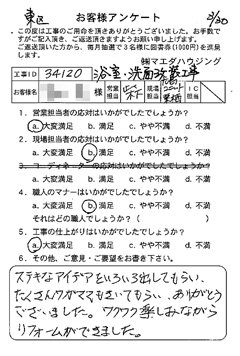 東区
お客様アンケート
2/30
この度は工事のご用命を頂きありがとうございました。お手数で
すがご記入頂き、ご返送頂きますようお願い申し上げます。
ご返送頂いた方から、毎月抽選で3名様に図書券(1000円)を贈呈
します。
㈱マエダハウジング
工事ID 34120 浴室・洗面改装工事
お客様名 様 営業担当 現場担当 IC担当
1. 営業担当者の応対はいかがでしたでしょうか?
a. 大変満足 b. 満足 c. やや不満 d. 不満
2. 現場担当者の応対はいかがでしたでしょうか?
a. 大変満足 b. 満足 c. やや不満 d. 不満
3. コーディネーターの応対はいかがでしたでしょうか?
4. 職人のマナーはいかがでしたでしょうか?
a. 大変満足 b. 満足 c. やや不満 d. 不満
それはどの職人でしょうか?( )
5. 工事の仕上がりはいかがでしたでしょうか?
a. 大変満足 b. 満足 c. やや不満 d. 不満
6. その他、ご意見・ご要望をお書き下さい。
ステキなアイデアといろいろ出してもらい、
たくさんワガママもきいてもらい、ありがとう
ございました。ワクワク楽しみながら
リフォームができました。